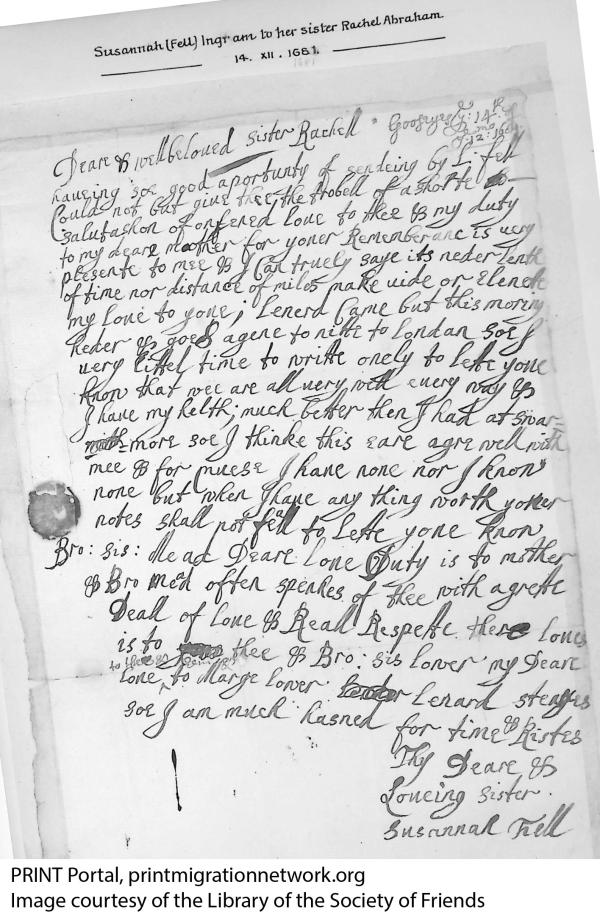 Susannah (Fell) Ingram to her sister Rachel Abraham.
14. XII. 1681.
Deare & wellbeloved Sister Rachell
haueing soe good aportunty of sendeing by L: fell
Could not but giue thee the trobell of a shorte
salutashon of onfened loue to thee & my duty
to my deare mother for yoner Rememberanc is uery
presente to mee & J Can truely saye its neder lenth
of time nor distance of miles make uide or
my loue to yone; Lenerd Came but this morning
heder & goes agene to nitte to london soe J
uery littel time to write onely to lette yone
know that wee are all uery well euery way &
J haue my helth; much better then J had at swar=
=more soe J thinke this eare agre well with
mee & for nuese J haue none nor J know
none but when J haue any thing worth yoner
notes shall not fell to lette yone know
Bro: sis: Mead Deare loue Duty is to mother
& Bro Mead often spenkes of thee with a grette
Deall of loue & Reall Respette there loues
is to thee & Bro: sis lower my Deare
loue to Marge lower Lenard
soe J am much hasned for time & Ristes
Thy Deare &
Loueing Sister.
Susannah Fell
PRINT Portal, printmigrationnetwork.org
Image courtesy of the Library of the Society of Friends